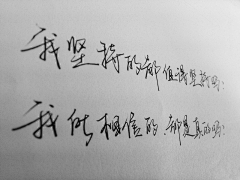 我坚持的都值得坚持吗？
我所相信的都是真的吗？